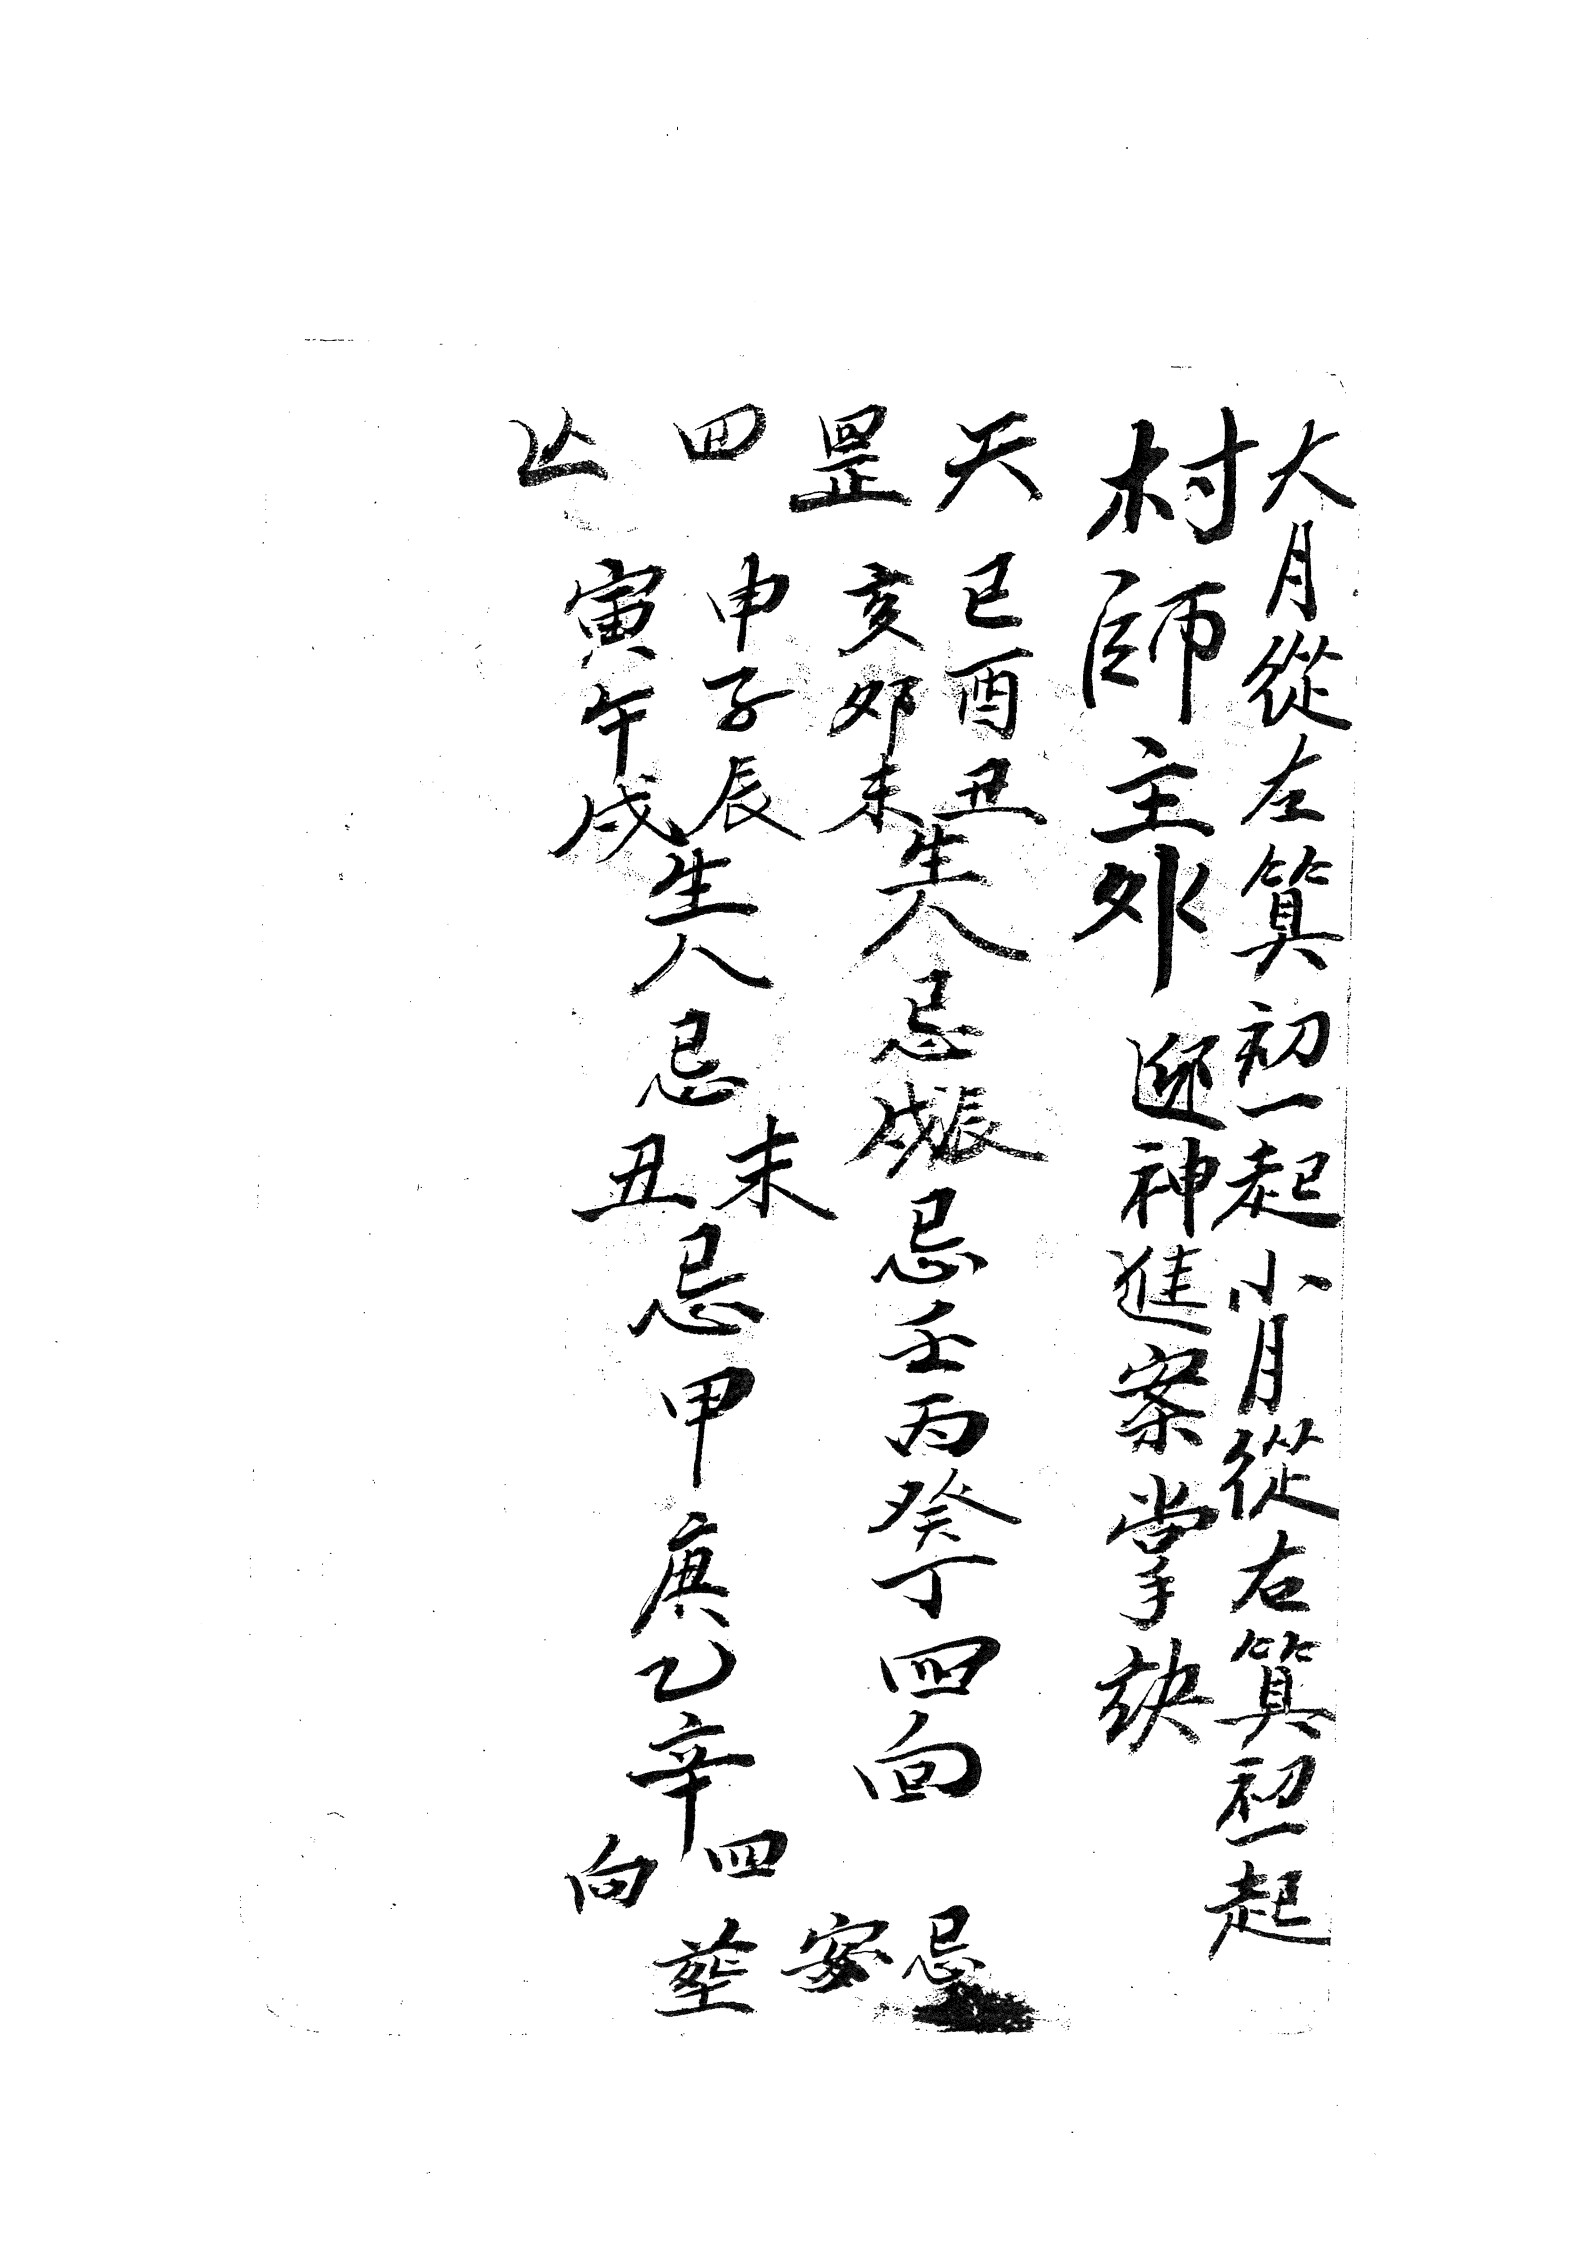 大月從左筭初一起小月從右筭初一起
村師主外 迎神進案掌訣
天罡四
巳酉丑
亥卯未
生人忌
辰戌
忌壬丙癸丁四向
申子辰
寅午戌
生人忌
未丑
忌甲庚乙辛四向
忌安塟